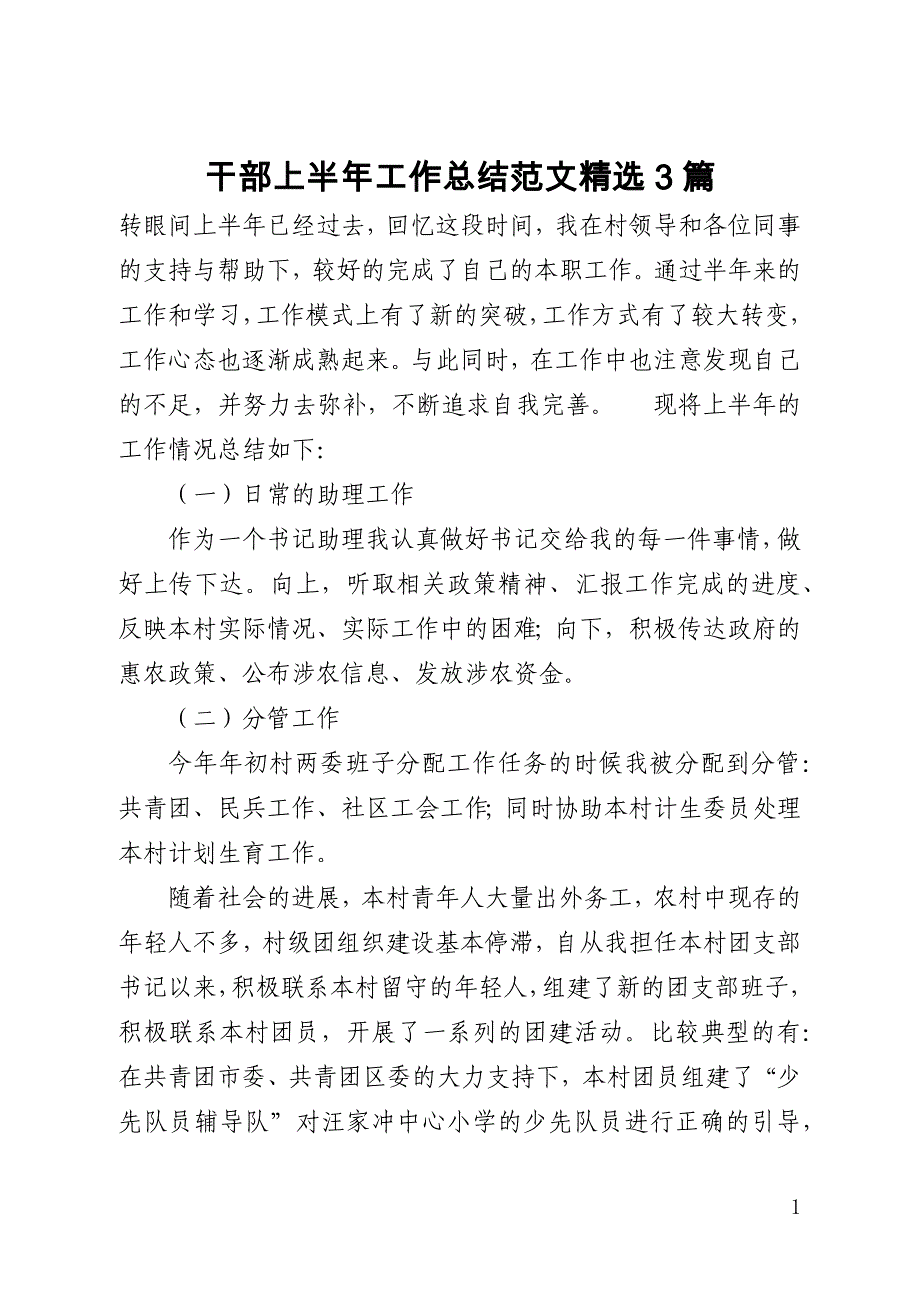 干部上半年工作总结范文精选 3 篇
转眼间上半年已经过去，回忆这段时间，我在村领导和各位同事
的支持与帮助下，较好的完成了自己的本职工作。通过半年来的
工作和学习，工作模式上有了新的突破，工作方式有了较大转变，
工作心态也逐渐成熟起来。与此同时，在工作中也注意发现自己
的不足，并努力去弥补，不断追求自我完善。　　现将上半年的
工作情况总结如下：
（一）日常的助理工作
作为一个书记助理我认真做好书记交给我的每一件事情，做
好上传下达。向上，听取相关政策精神、汇报工作完成的进度、
反映本村实际情况、实际工作中的困难；向下，积极传达政府的
惠农政策、公布涉农信息、发放涉农资金。
（二）分管工作
今年年初村两委班子分配工作任务的时候我被分配到分管：
共青团、民兵工作、社区工会工作；同时协助本村计生委员处理
本村计划生育工作。
随着社会的进展，本村青年人大量出外务工，农村中现存的
年轻人不多，村级团组织建设基本停滞，自从我担任本村团支部
书记以来，积极联系本村留守的年轻人，组建了新的团支部班子，
积极联系本村团员，开展了一系列的团建活动。比较典型的有：
在共青团市委、共青团区委的大力支持下，本村团员组建了“少
先队员辅导队”对汪家冲中心小学的少先队员进行正确的引导，
1